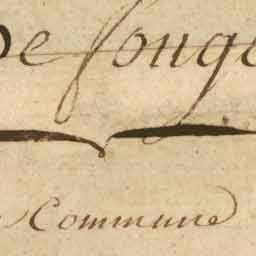 De fouge
Commune